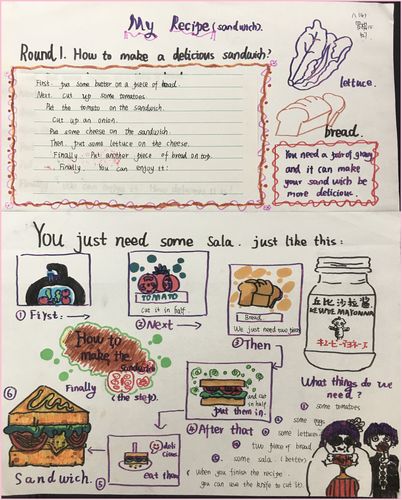 My Recipe (sandwich).
Round 1. How to make a delicious sandwich?
First. put some butter on a piece of bread.
Next. Cut up some tomatoes.
Put the tomato on the sandwich.
Cut up an onion.
Put some cheese on the sandwich.
Then. put some lettuce on the cheese.
Finally. Put another piece of bread on top.
Finally. You can enjoy it!
lettuce.
bread.
You need a pair of
and it can make
your sandwich be
more delicious.
You just need some sala. just like this:
① First:
TOMATO
Cut it in half.
② Next
Bread
We just need two
③ Then
丘比沙拉酱
KEWPIE MAYONNAISE
キユーピーマヨネーズ
How to
make the
sandwich
(the step).
and cut
in half
put them in.
④ After that
deli
cious.
eat them
⑤
Finally
⑥
Sandwich.
What things do we
need?
① some tomatoes
② some eggs
③ some lettuce
④ two piece of bread
⑤ some sala. (better)
(when you finish the recipe.
you can use the knife to cut it)